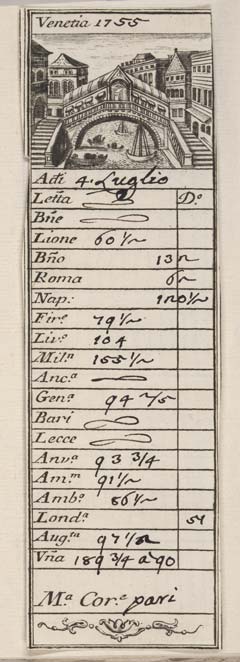 Venetia 1755
Adi 4. Luglio
Letta Do
Bñe
Lione 60 1/2
Bño 13
Roma 62
Nap: 120 1/2
Fire 79 1/2
Livo 104
Mila 155 1/2
Anca
Gena 94 2/5
Bari
Lecce
Anva 93 3/4
Amm 91 1/2
Ambo 86 1/2
Londa 51
Augta 97 1/2
Vña 189 3/4 a 90
Ma Core pari